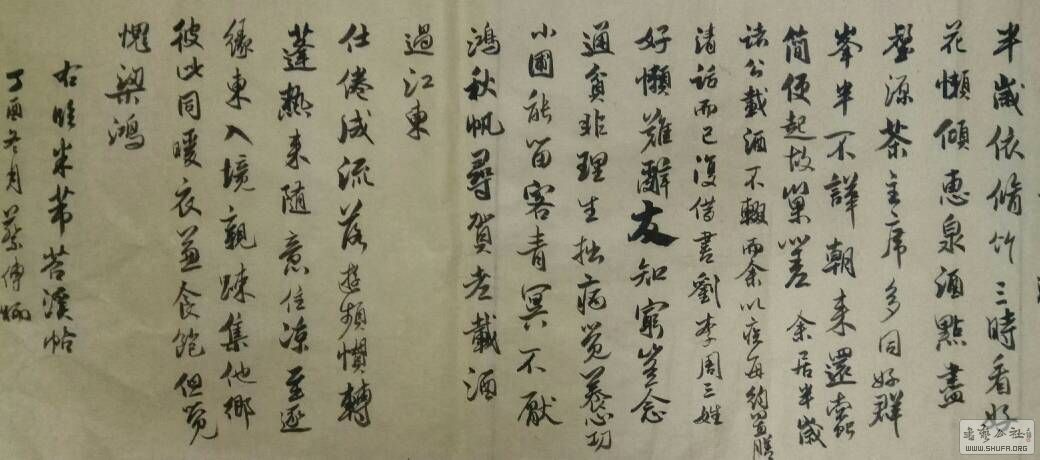 半歲依脩竹三時看好
花懶傾惠泉酒點盡
壑源茶主席多同好群
峯半不譁朝来還蠹
簡便起故巢嗟 余居半歲
诸公載酒不輟而余以疾每約置膳
清話而已復借書劉李周三姓
好懶難辭友知窮豈念
通貧非理生拙病覺養心功
小圃能留客青冥不厭
鴻秋帆尋賀老載酒
過江東
仕倦成流落遊頻慣轉
蓬熱来隨意住凉至逐
緣東入境親疎集他鄉
彼此同暖衣兼食飽但覺
愧梁鴻
右臨米芾苕溪帖
丁酉冬月蔡傳
书艺公社
WWW.SHUFA.ORG